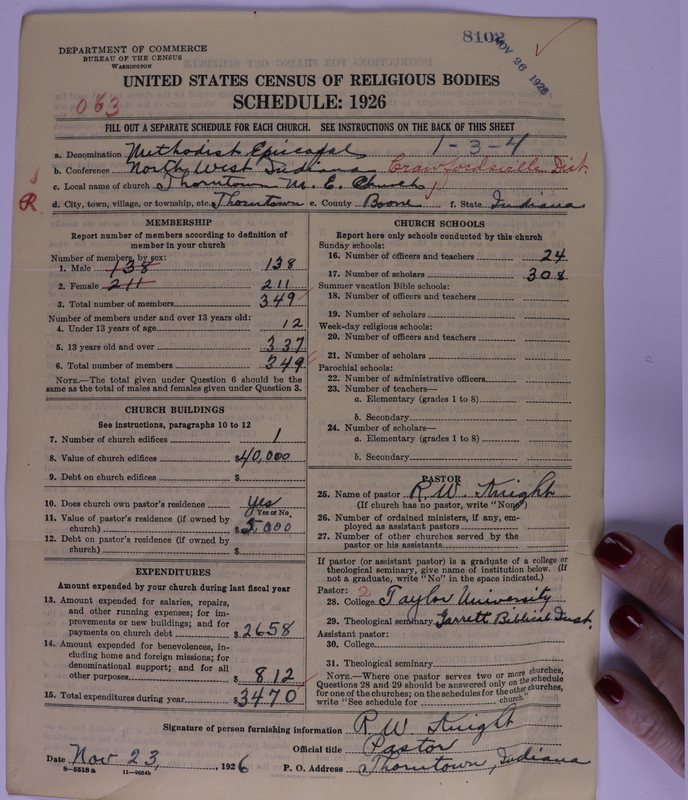 8102
NOV 26 1926
DEPARTMENT OF COMMERCE
BUREAU OF THE CENSUS
WASHINGTON
UNITED STATES CENSUS OF RELIGIOUS BODIES
063
SCHEDULE: 1926
FILL OUT A SEPARATE SCHEDULE FOR EACH CHURCH. SEE INSTRUCTIONS ON THE BACK OF THIS SHEET
1-3-4
a. Denomination Methodist Episcopal
b. Conference North West Indiana Crawfordsville Dist.
c. Local name of church Thorntown M. E. Church
R. d. City, town, village, or township, etc. Thorntown e. County Boone f. State Indiana
MEMBERSHIP
Report number of members according to definition of member in your church
Number of members, by sex:
1. Male 138 138
2. Female 211 211
3. Total number of members 349
Number of members under and over 13 years old:
4. Under 13 years of age 12
5. 13 years old and over 337
6. Total number of members 349
NOTE.—The total given under Question 6 should be
same as the total of males and females given under Question 3.
CHURCH BUILDINGS
See instructions, paragraphs 10 to 12
7. Number of church edifices 1
8. Value of church edifices $40,000
9. Debt on church edifices $
10. Does church own pastor's residence yes
Yes or No
11. Value of pastor's residence (if owned by
church) $5000
12. Debt on pastor's residence (if owned by
church) $
EXPENDITURES
Amount expended by church during last fiscal year
13. Amount expended for salaries, repairs,
and other running expenses; for im-
provements or new buildings; and for
payments on church debt $2658
14. Amount expended for benevolences, in-
cluding home and foreign missions; for
denominational support; and for all
other purposes $812
15. Total expenditures during year $3470
CHURCH SCHOOLS
Report here only schools conducted by this church
Sunday schools:
16. Number of officers and teachers 24
17. Number of scholars 308
Summer vacation Bible schools:
18. Number of officers and teachers
19. Number of scholars
Week-day religious schools:
20. Number of officers and teachers
21. Number of scholars
Parochial schools:
22. Number of administrative officers
23. Number of teachers—
a. Elementary (grades 1 to 8)
b. Secondary
24. Number of scholars—
a. Elementary (grades 1 to 8)
b. Secondary
PASTOR
25. Name of pastor R. W. Knight
(If church has no pastor, write "None")
26. Number of ordained ministers, if any, em-
ployed as assistant pastors
27. Number of other churches served by the
pastor or his assistants
If pastor (or assistant pastor) is a graduate of a college or
theological seminary, give name of institution below. (If
not a graduate, write "No" in the space indicated.)
Pastor: 2
28. College Taylor University
29. Theological seminary Garrett Biblical Inst.
Assistant pastor:
30. College
31. Theological seminary
NOTE.—Where one pastor serves two or more churches,
Questions 28 and 29 should be answered only on the schedule
for one of the churches; on the schedules for the other churches,
write "See schedule for church."
Signature of person furnishing information R W Knight
Official title Pastor
Date Nov 23, 1926 P. O. Address Thorntown, Indiana
8—5518 a 11—9054b